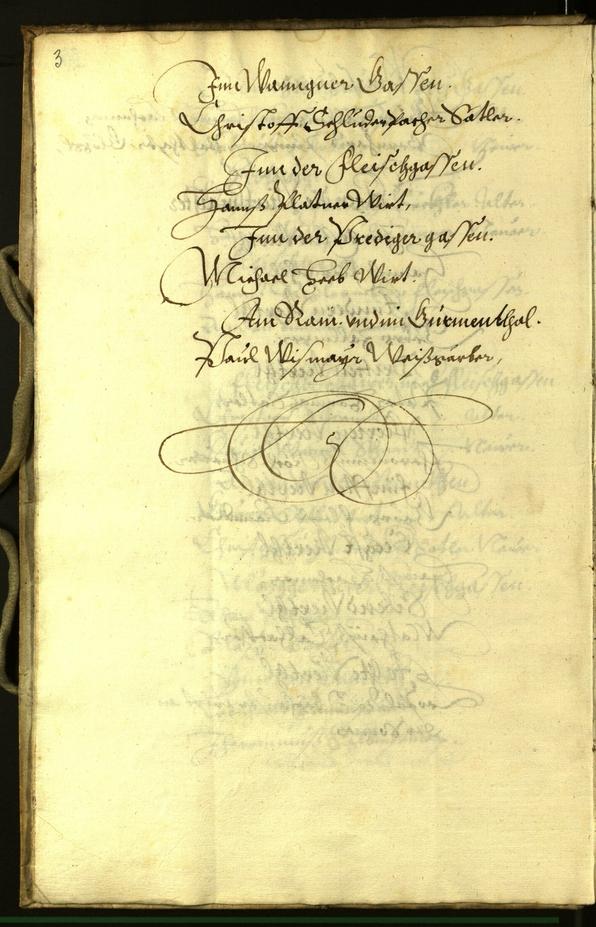 3
Inn Wanngner Gassen.
Christoff Schluderpacher Satler.
Inn der Fleischgassen.
Hannß Platner Wirt,
Inn der Prediger gassen.
Michael Heeb Wirt.
Am Rain vnd im Gurmenthal.
Paul Wismayr Weißgärber,